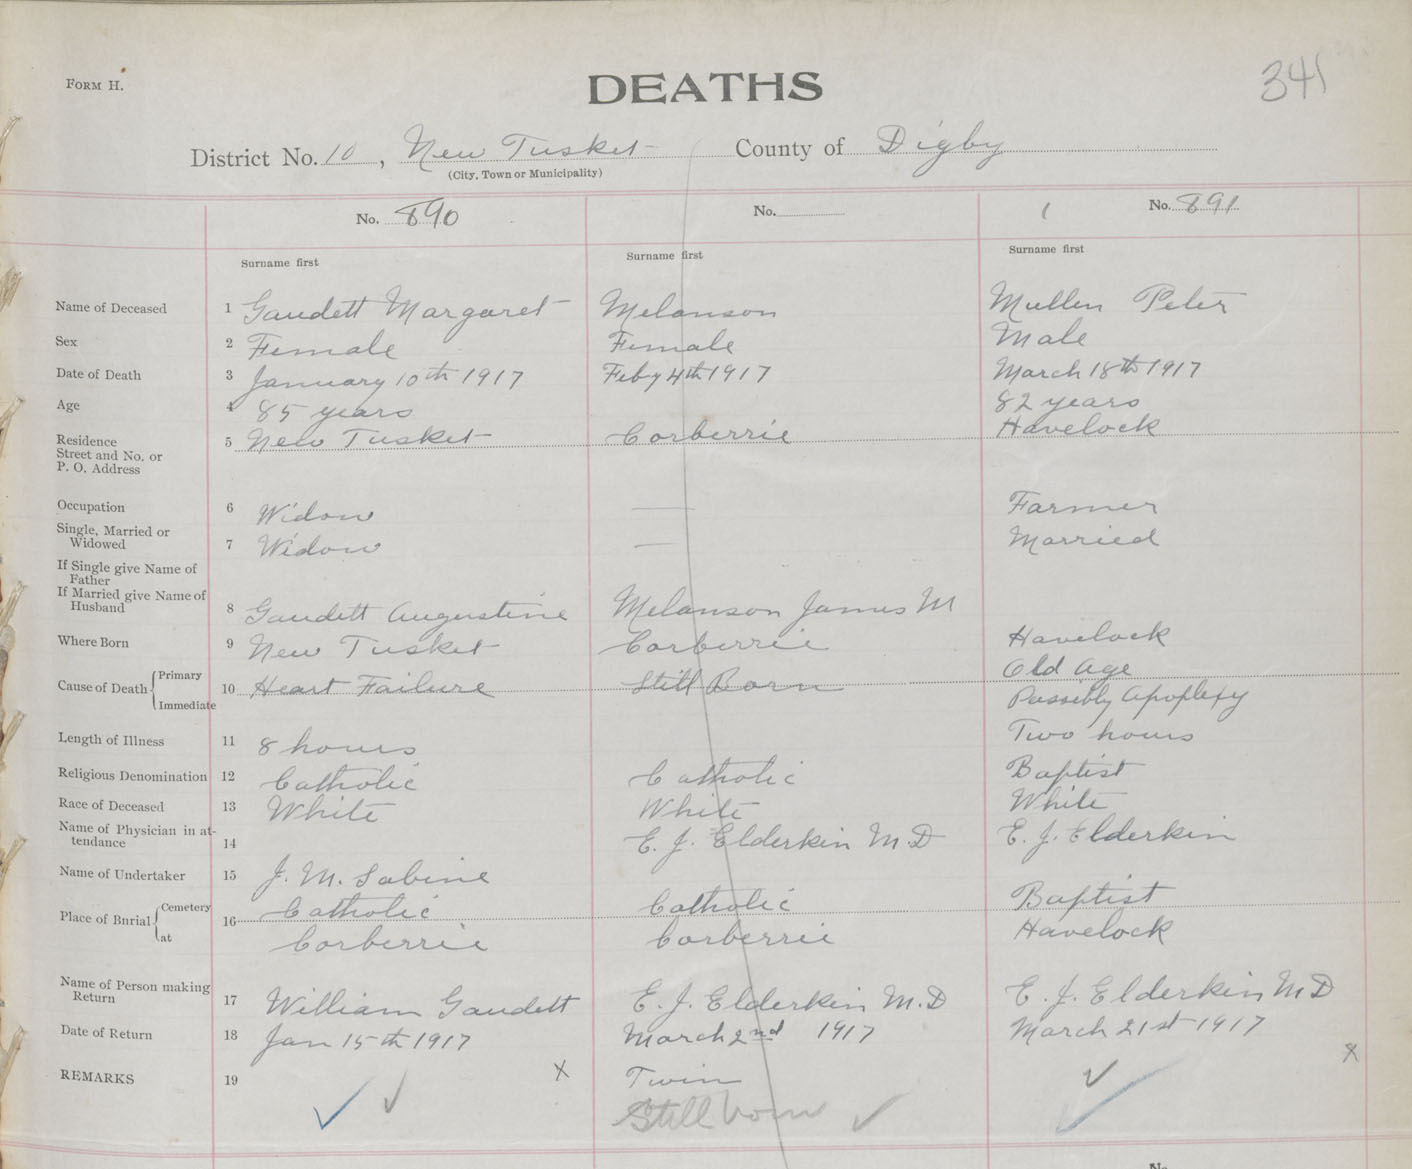 FORM H.
DEATHS
341
District No. 10, New Tusket County of Digby
(City, Town or Municipality)
No. 890 No. 1 No. 891
Surname first Surname first Surname first
Name of Deceased 1 Gaudett Margaret Melanson Mullen Peter
Sex 2 Female Female Male
Date of Death 3 January 10th 1917 Feby 4th 1917 March 18th 1917
Age 4 85 years 82 years
Residence 5 New Tusket Corberrie Havelock
Street and No. or
P. O. Address
Occupation 6 Widow — Farmer
Single, Married or
Widowed 7 Widow — Married
If Single give Name of
Father
If Married give Name of
Husband 8 Gaudett Augustine Melanson James M
Where Born 9 New Tusket Corberrie Havelock
Cause of Death { Primary 10 Heart Failure Still Born Old Age
Immediate Possibly Apoplexy
Length of Illness 11 8 hours Two hours
Religious Denomination 12 Catholic Catholic Baptist
Race of Deceased 13 White White White
Name of Physician in at-
tendance 14 E. J. Elderkin M.D E. J. Elderkin
Name of Undertaker 15 J. M. Sabine
Place of Bnrial { Cemetery 16 Catholic Catholic Baptist
at Corberrie Corberrie Havelock
Name of Person making
Return 17 William Gaudett E. J. Elderkin M.D E. J. Elderkin M D
Date of Return 18 Jan 15th 1917 March 2nd 1917 March 21st 1917
REMARKS 19 x Twin x
Still born
No.